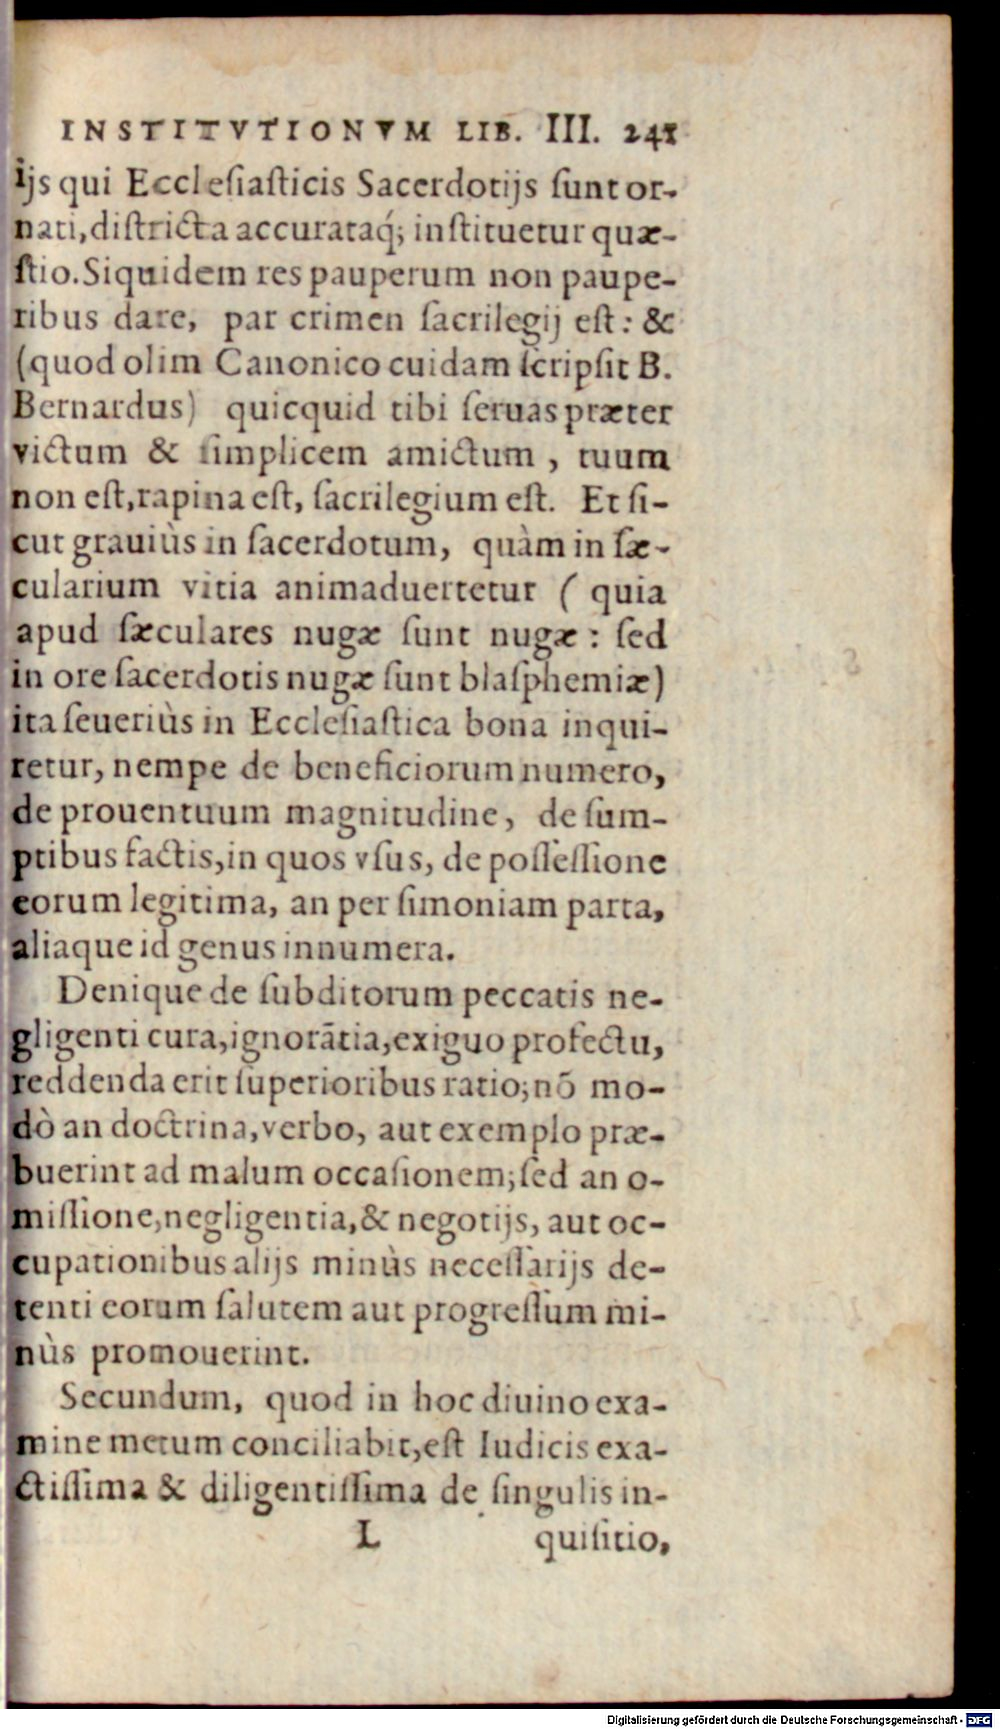 INSTITVTIONVM LIB. III. 241
ijs qui Ecclesiasticis Sacerdotijs sunt or-
nati, districta accurataq́; instituetur quæ-
stio. Siquidem res pauperum non paupe-
ribus dare, par crimen sacrilegij est: &
(quod olim Canonico cuidam scripsit B.
Bernardus) quicquid tibi seruas præter
victum & simplicem amictum, tuum
non est, rapina est, sacrilegium est. Et si-
cut grauiùs in sacerdotum, quàm in sæ-
cularium vitia animaduertetur (quia
apud sæculares nugæ sunt nugæ: sed
in ore sacerdotis nugæ sunt blasphemiæ)
ita seueriùs in Ecclesiastica bona inqui-
retur, nempe de beneficiorum numero,
de prouentuum magnitudine, de sum-
ptibus factis, in quos vsus, de possessione
eorum legitima, an per simoniam parta,
aliaque id genus innumera.
Denique de subditorum peccatis ne-
gligenti cura, ignorãtia, exiguo profectu,
reddenda erit superioribus ratio; nõ mo-
dò an doctrina, verbo, aut exemplo præ-
buerint ad malum occasionem; sed an o-
missione, negligentia, & negotijs, aut oc-
cupationibus alijs minùs necessarijs de-
tenti eorum salutem aut progressum mi-
nùs promouerint.
Secundum, quod in hoc diuino exa-
mine metum conciliabit, est Iudicis exa-
ctissima & diligentissima de singulis in-
L quisitio,
Digitalisierung gefördert durch die Deutsche Forschungsgemeinschaft - DFG